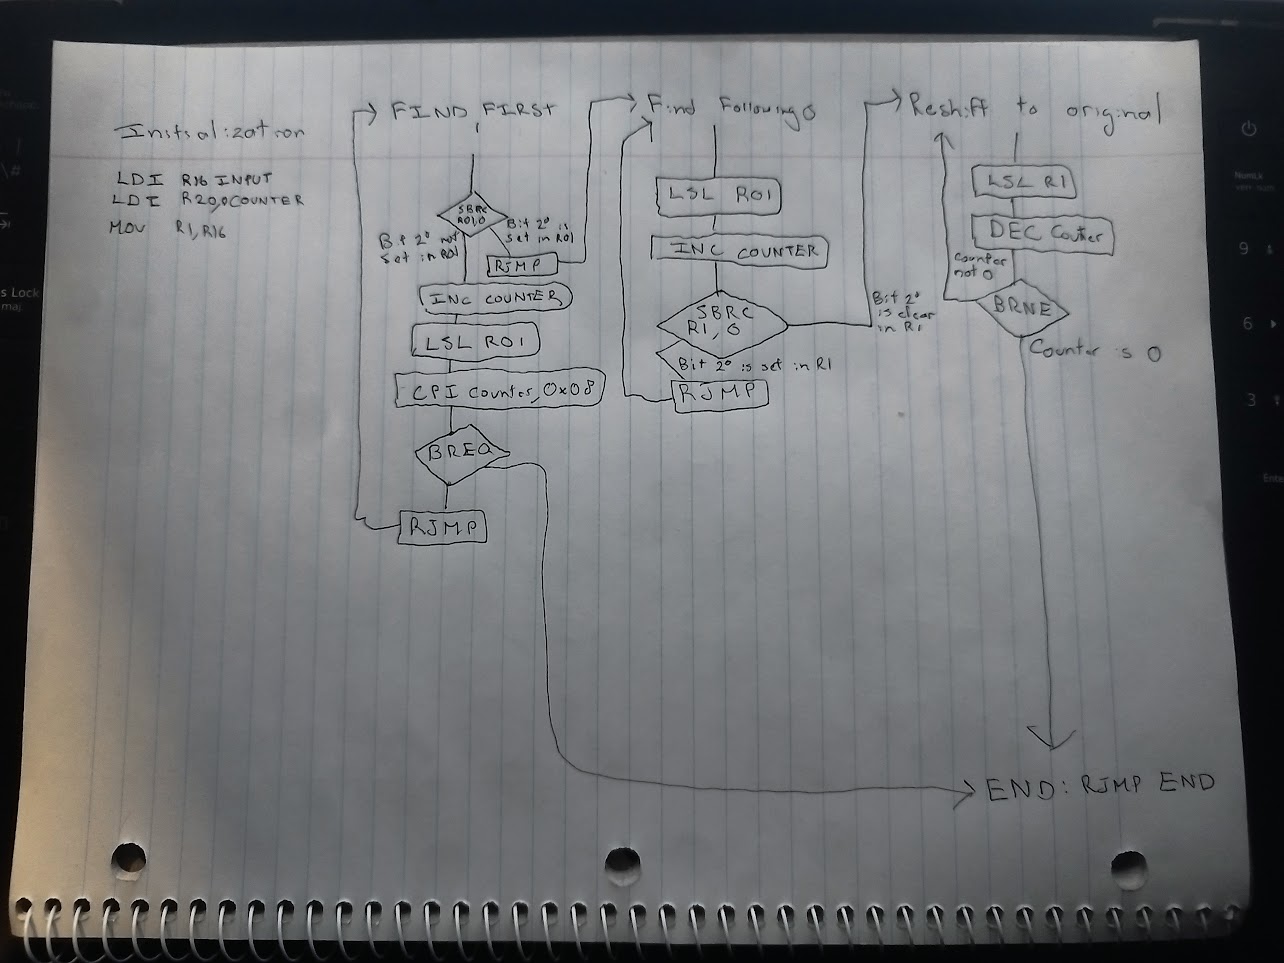 Initialization
LDI R16 INPUT
LDI R20,0 COUNTER
MOV R1, R16
FIND FIRST
SBRC
R01,0
Bit 2⁰ not
set in R01
Bit 2⁰ is
set in R01
RJMP
INC COUNTER
LSL R01
CPI Counter, 0x08
BREQ
RJMP
Find Following 0
LSL R01
INC COUNTER
SBRC
R1, 0
Bit 2⁰ is set in R1
RJMP
Bit 2⁰
is clear
in R1
Reshift to original
LSL R1
DEC Counter
Counter
not 0
BRNE
Counter is 0
END: RJMP END
NumLk
9
s Lock
maj
6
3
Ente